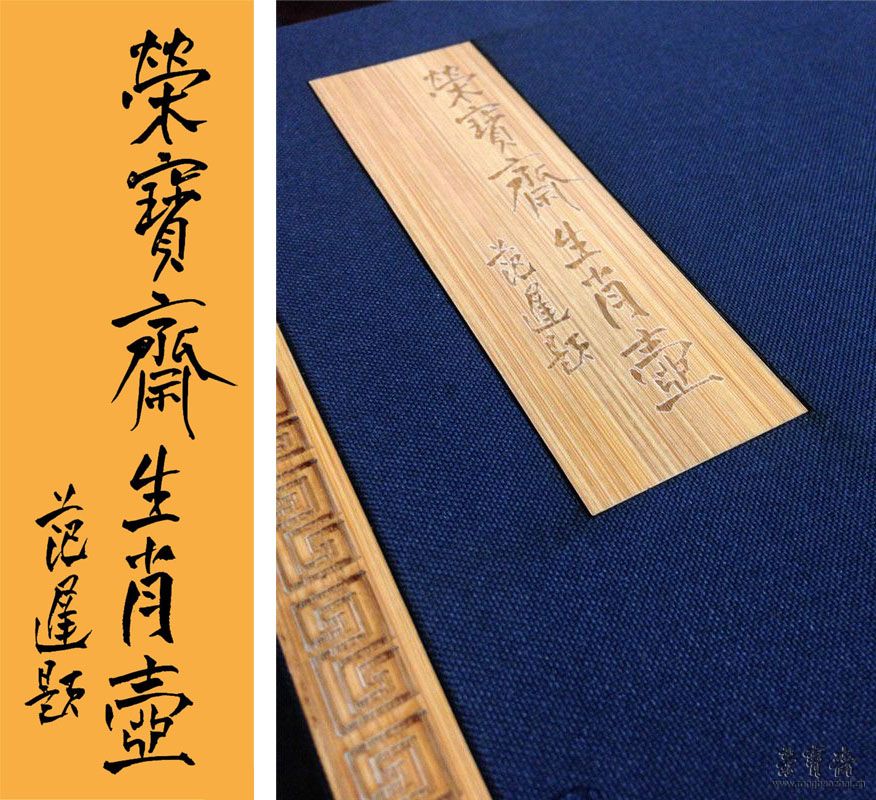 榮寶齋生肖壺
范遲題
榮寶齋生肖壺
范遲題
榮寶齋
www.rongbaozhai.cn